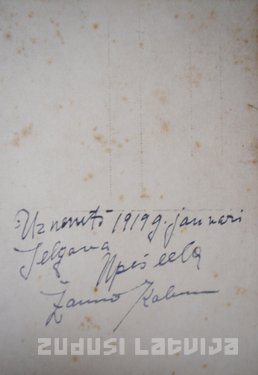 Uzņemtš 1919 g. janvari
Jelgava
Upes ielā
Žanno
ZUDUSI LATVIJA